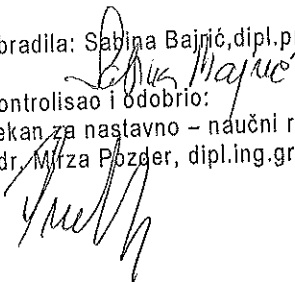 bradila: Sabina Bajrić,dipl.pr
Sabina Bajrić
ontrolisao i odobrio:
ekan za nastavno – naučni r
dr. Mirza Pozder, dipl.ing.gr